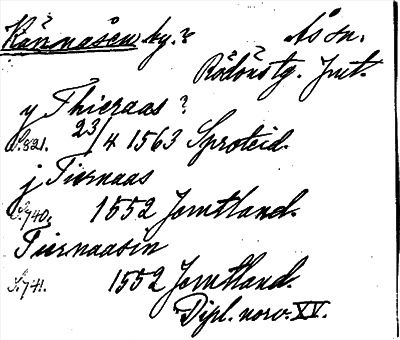 Kännåsen by. Ås sn.
Rödöns tg. Jmt.
y Thieraas ?
S. 821. 23/4 1563 Sproteid.
j Tiernaas
S. 740. 1552 Jemtland.
Tiernaasin
S. 741. 1552 Jemtland.
Dipl. norv. XV.